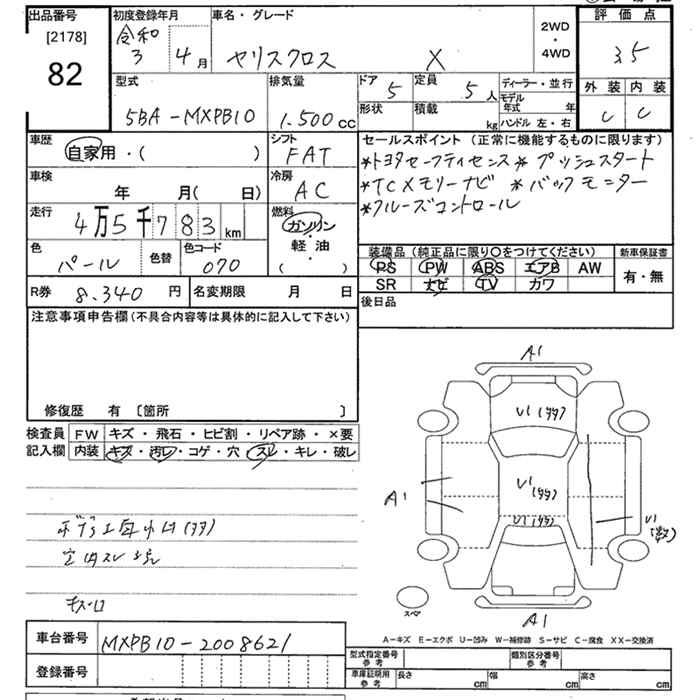 出品番号 初度登録年月 車名・グレード 2WD・4WD 評価点
[2178] 令和 3.5
82 3 4月 ヤリスクロス X
型式 排気量 ドア 5 定員 5人 ディーラー・並行 外装 内装
5BA-MXPB10 1.500cc 形状 積載 kg モデル年式 年 C C
ハンドル 左・右
車歴 自家用・( ) シフト FAT セールスポイント(正常に機能するものに限ります)
車検 年 月( 日) 冷房 AC *トヨタセーフティセンス* プッシュスタート
走行 4万5千783km 燃料 ガソリン・軽油 ( ) *TCメモリーナビ *バックモニター
*クルーズコントロール
色 パール 色替 色コード 070 装備品(純正品に限り○をつけてください) 新車保証書
PS PW ABS エアB AW 有・無
SR ナビ TV カワ
R券 8.340円 名変期限 月 日 後日品
注意事項申告欄(不具合内容等は具体的に記入して下さい)
修復歴 有 〔箇所 〕
検査員 FW キズ・飛石・ヒビ割・リペア跡・×要
記入欄 内装 キズ・汚レ・コゲ・穴・スレ・キレ・破レ
A1
U1(多多)
U1
(多多)
A1
U1(多多)
U1
A1
スペア
A-キズ E-エクボ U-凹み W-補修跡 S-サビ C-腐食 XX-交換済
車台番号 MXPB10-2008621
登録番号
型式指定番号 参考 類別区分番号 参考
車庫証明用 参考 長さ cm 幅 cm 高さ cm